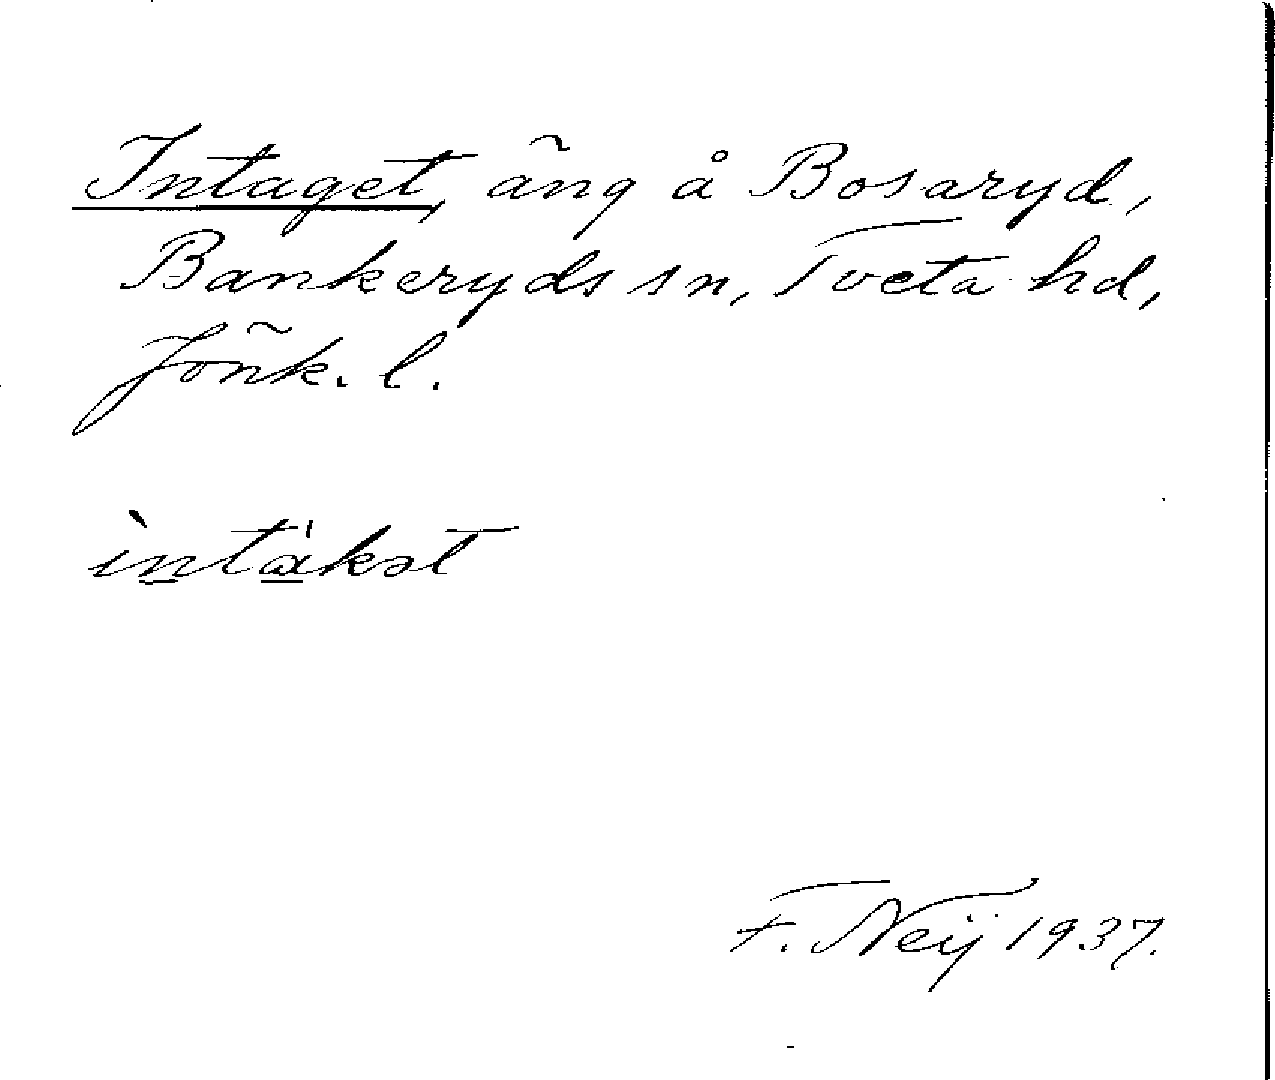 Intaget, äng å Bosaryd,
Bankeryds sn, Tveta hd,
Jönk. l.
F. Neij 1937.